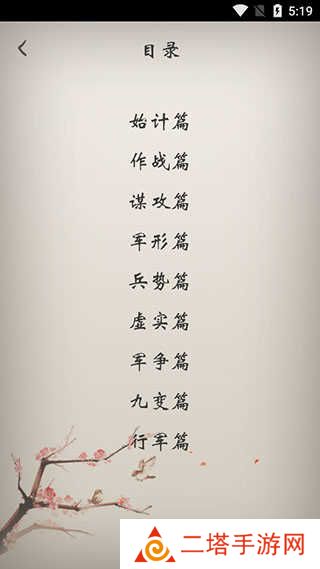 5:19
目录
始计篇
作战篇
谋攻篇
军形篇
兵势篇
虚实篇
军争篇
九变篇
行军篇
二塔手游网